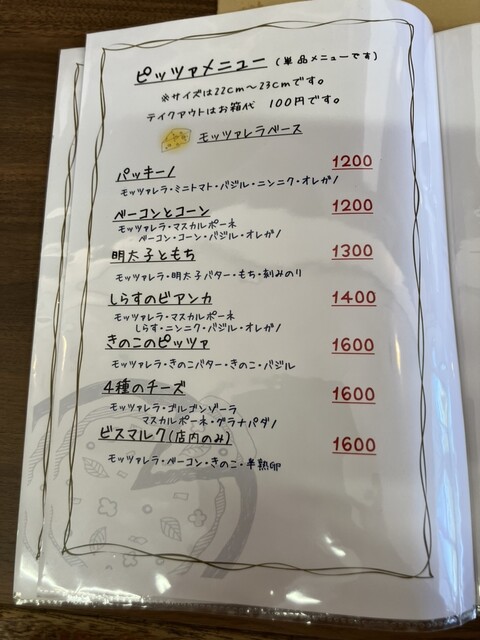 ピッツァメニュー (単品メニューです)
※サイズは22cm～23cmです。
テイクアウトはお箱代 100円です。
モッツァレラベース
パッキーノ 1200
モッツァレラ・ミニトマト・バジル・ニンニク・オレガノ
ベーコンとコーン 1200
モッツァレラ・マスカルポーネ
ベーコン・コーン・バジル・オレガノ
明太子ともち 1300
モッツァレラ・明太子バター・もち・刻みのり
しらすのビアンカ 1400
モッツァレラ・マスカルポーネ
しらす・ニンニク・バジル・オレガノ
きのこのピッツァ 1600
モッツァレラ・きのこバター・きのこ・バジル
4種のチーズ 1600
モッツァレラ・ゴルゴンゾーラ
マスカルポーネ・グラナパダノ
ビスマルク(店内のみ) 1600
モッツァレラ・ベーコン・きのこ・半熟卵